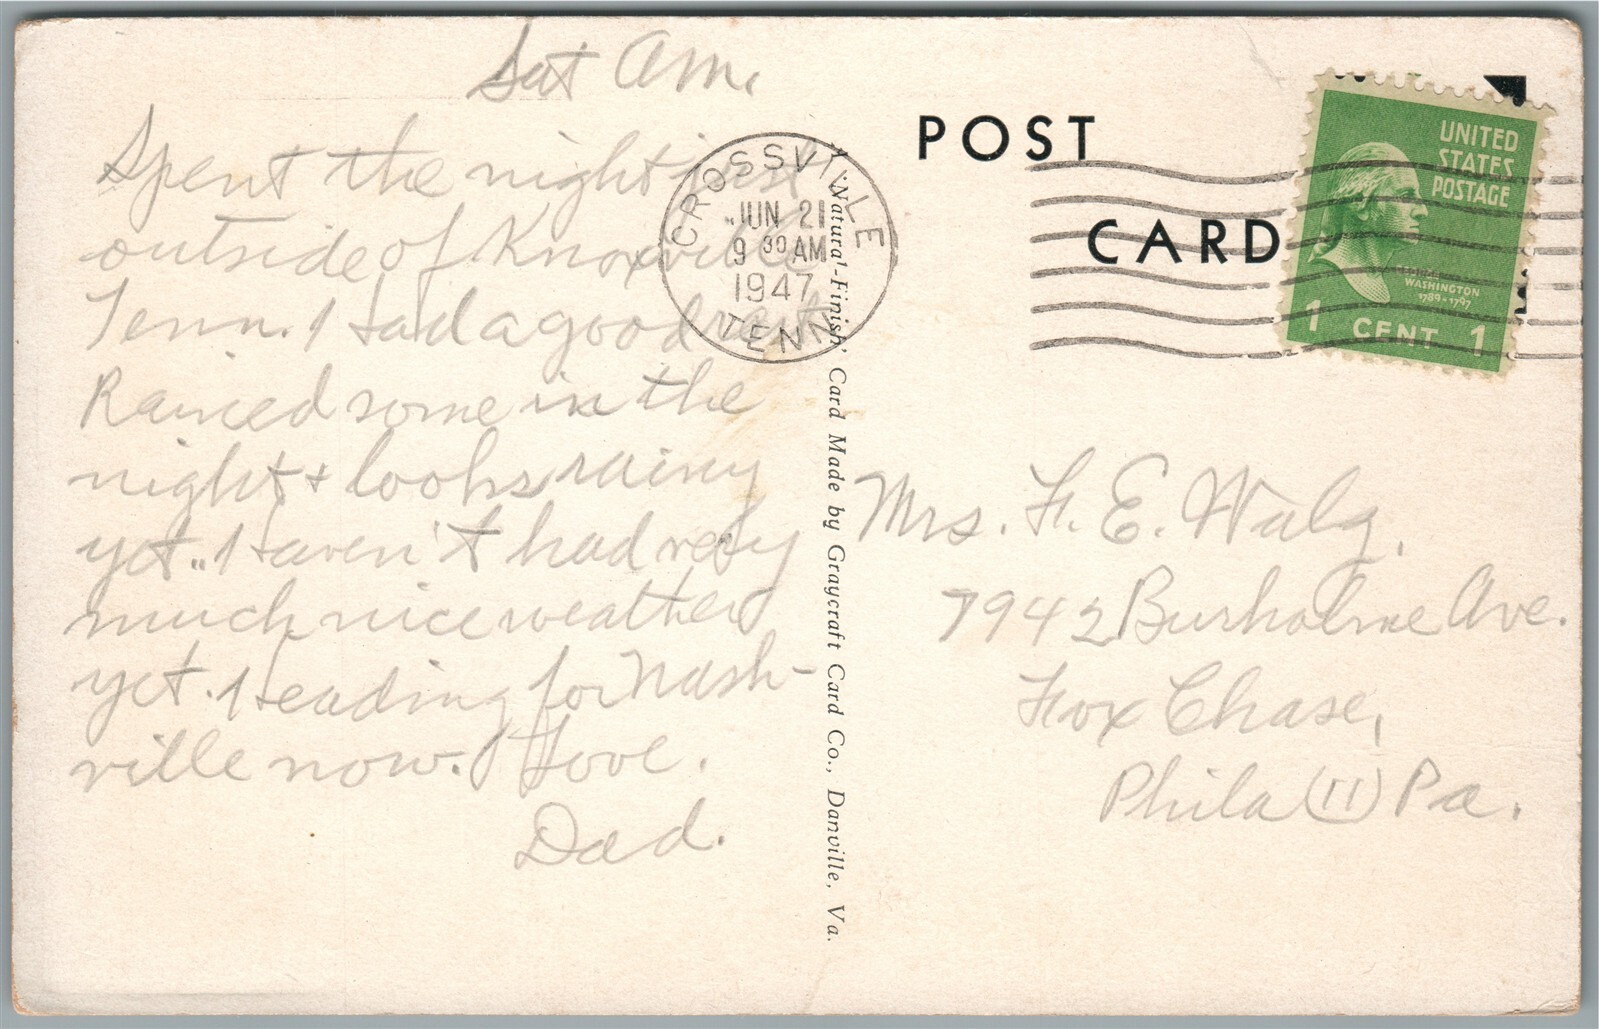 Sat Am.
Spent the night just
outside of Knoxville
Tenn. Had a good rest.
Rained some in the
night & looks rainy
yet. Haven't had very
much nice weather
yet. Heading for Nash-
ville now. Love.
Dad.
CROSSVILLE
JUN 21
9 30 AM
1947
TENN
'Natural-Finish' Card Made by Graycraft Card Co., Danville, Va.
POST
CARD
UNITED
STATES
POSTAGE
WASHINGTON
1789-1797
1 CENT 1
Mrs. F. E. Walz,
7942 Burholme Ave.
Fox Chase,
Phila (11) Pa.